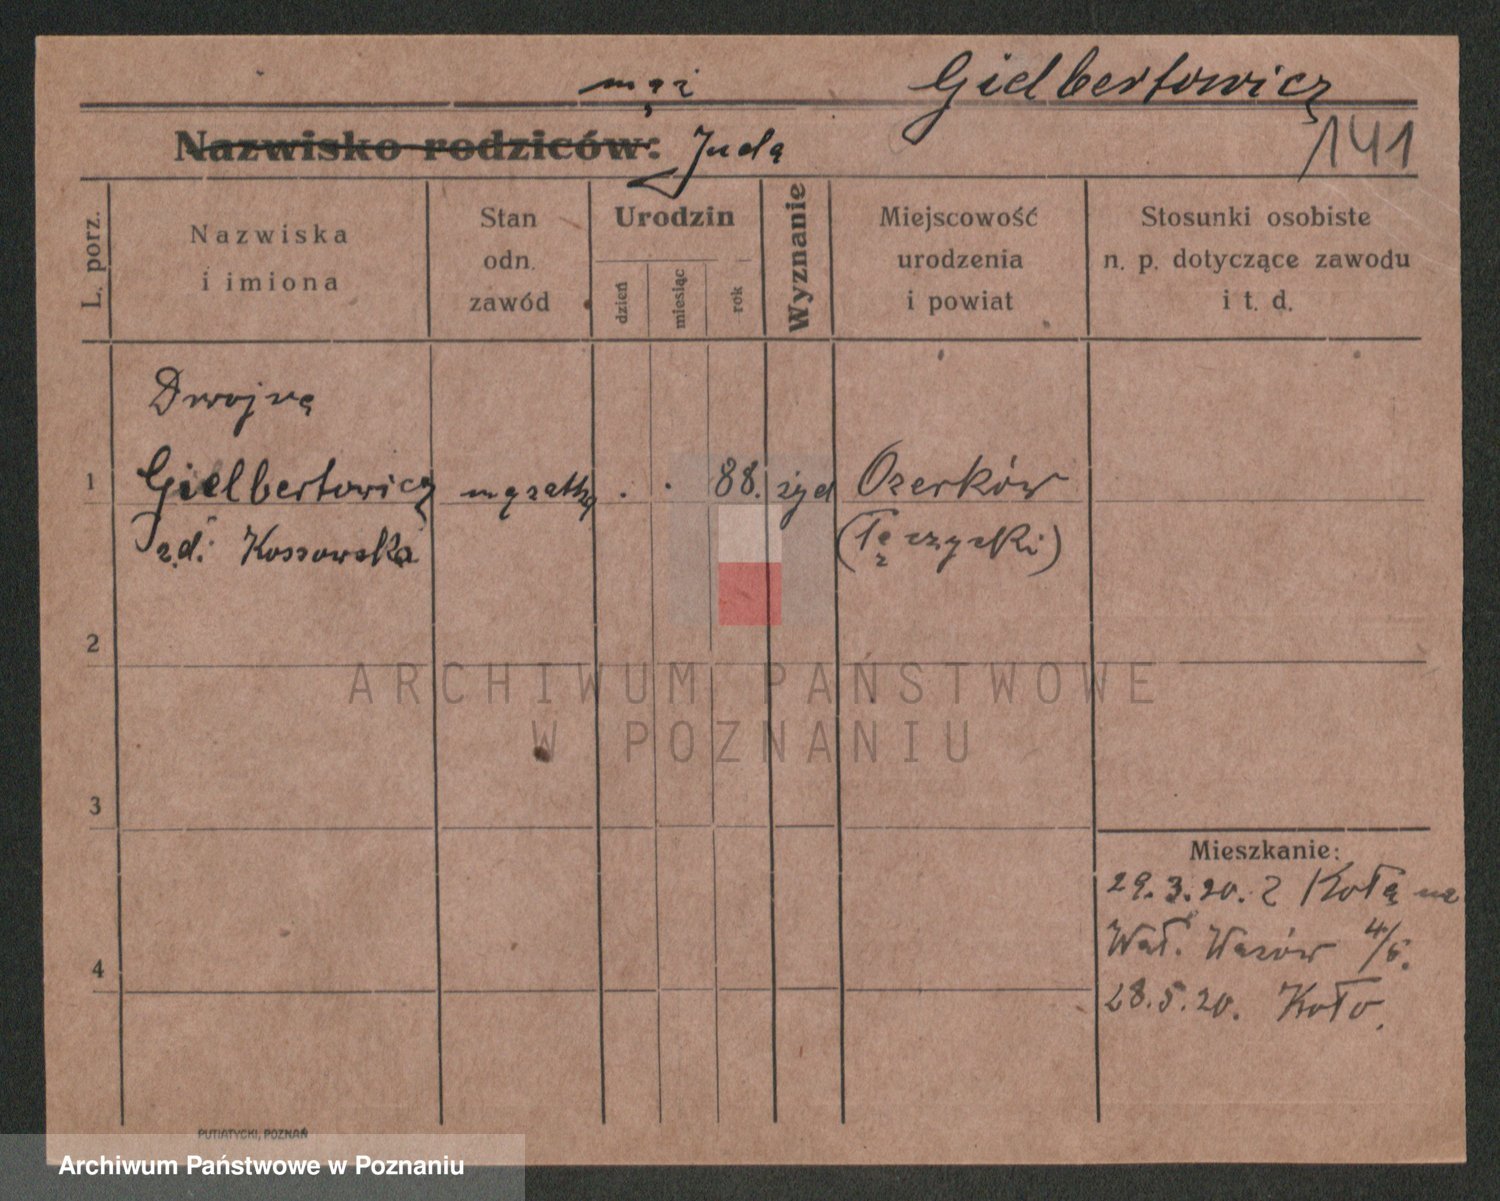 mąż Gielbertowicz
Nazwisko rodziców: Juda
141
L. porz.
Nazwiska
i imiona
Stan
odn.
zawód
Urodzin
dzień
miesiąc
rok
Wyznanie
Miejscowość
urodzenia
i powiat
Stosunki osobiste
n. p. dotyczące zawodu
i t. d.
Dwojra
1 Gielbertowicz mężatka . . 88. żyd Ozerków
z d. Kossowska (Łęczycki)
2
ARCHIWUM PAŃSTWOWE
W POZNANIU
3
Mieszkanie:
29.3.20. z Koła na
Wał. Wazów 4/5.
4
28.5.20. Koło.
PUTIATYCKI, POZNAŃ
Archiwum Państwowe w Poznaniu